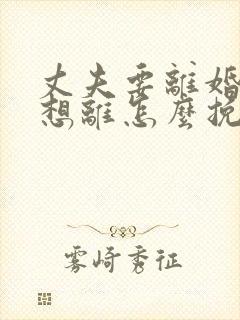 丈夫要離婚
想離怎麼挽
雾崎秀征